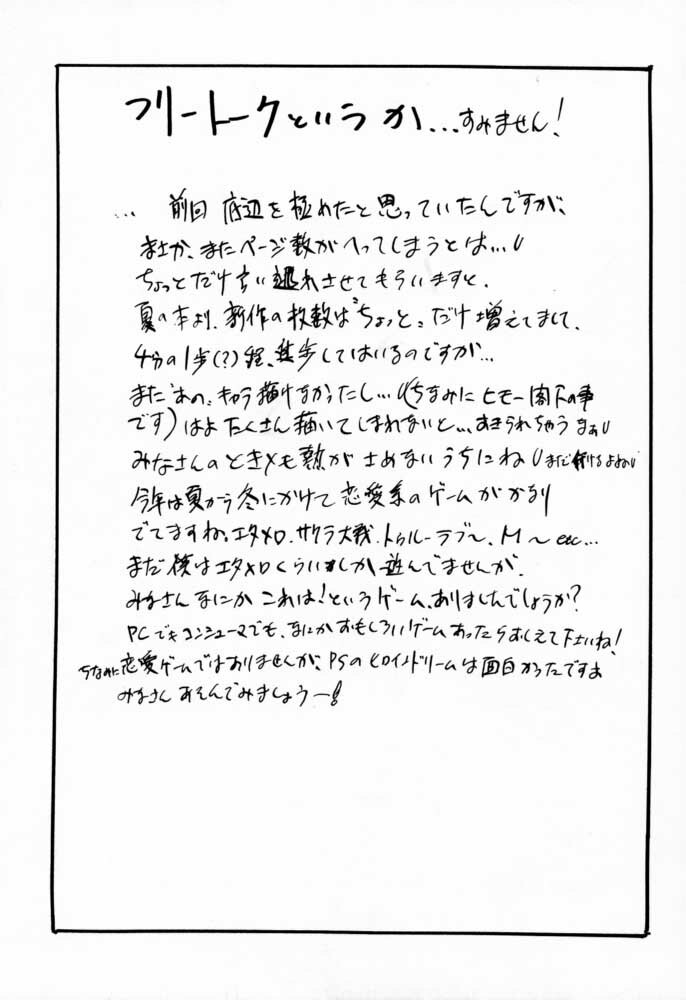 フリートークというか…すみません!
… 前回 底辺を極めたと思っていたんですが、
まさか、またページ数がへってしまうとは…
ちょっとだけ言い逃れさせてもらいますと、
夏の本より、新作の枚数は"ちょっと"だけ増えてまして、
4分の1歩(?)程、進歩してはいるのですが…
まだ"あの"キャラ描けなかったし…(ちなみに ヒモー閣下の事
です)はよ たくさん描いてしまわないと…あきられちゃうなぁ
みなさんのときメモ熱が さめないうちにね まだ行けるよね
今年は夏から冬にかけて 恋愛系のゲームが かなり
でてますね。エタメロ、サクラ大戦、トゥルーラブ〜、M〜 etc…
まだ僕はエタメロくらいしか遊んでませんが、
みなさん なにか これは!というゲーム、ありましたでしょうか?
PCでも コンシューマでも、なにか おもしろいゲーム あったら おしえて下さいね!
ちなみに恋愛ゲームではありませんが、PSのヒロインドリームは面白かったですよ
みなさん あそんでみましょうー!